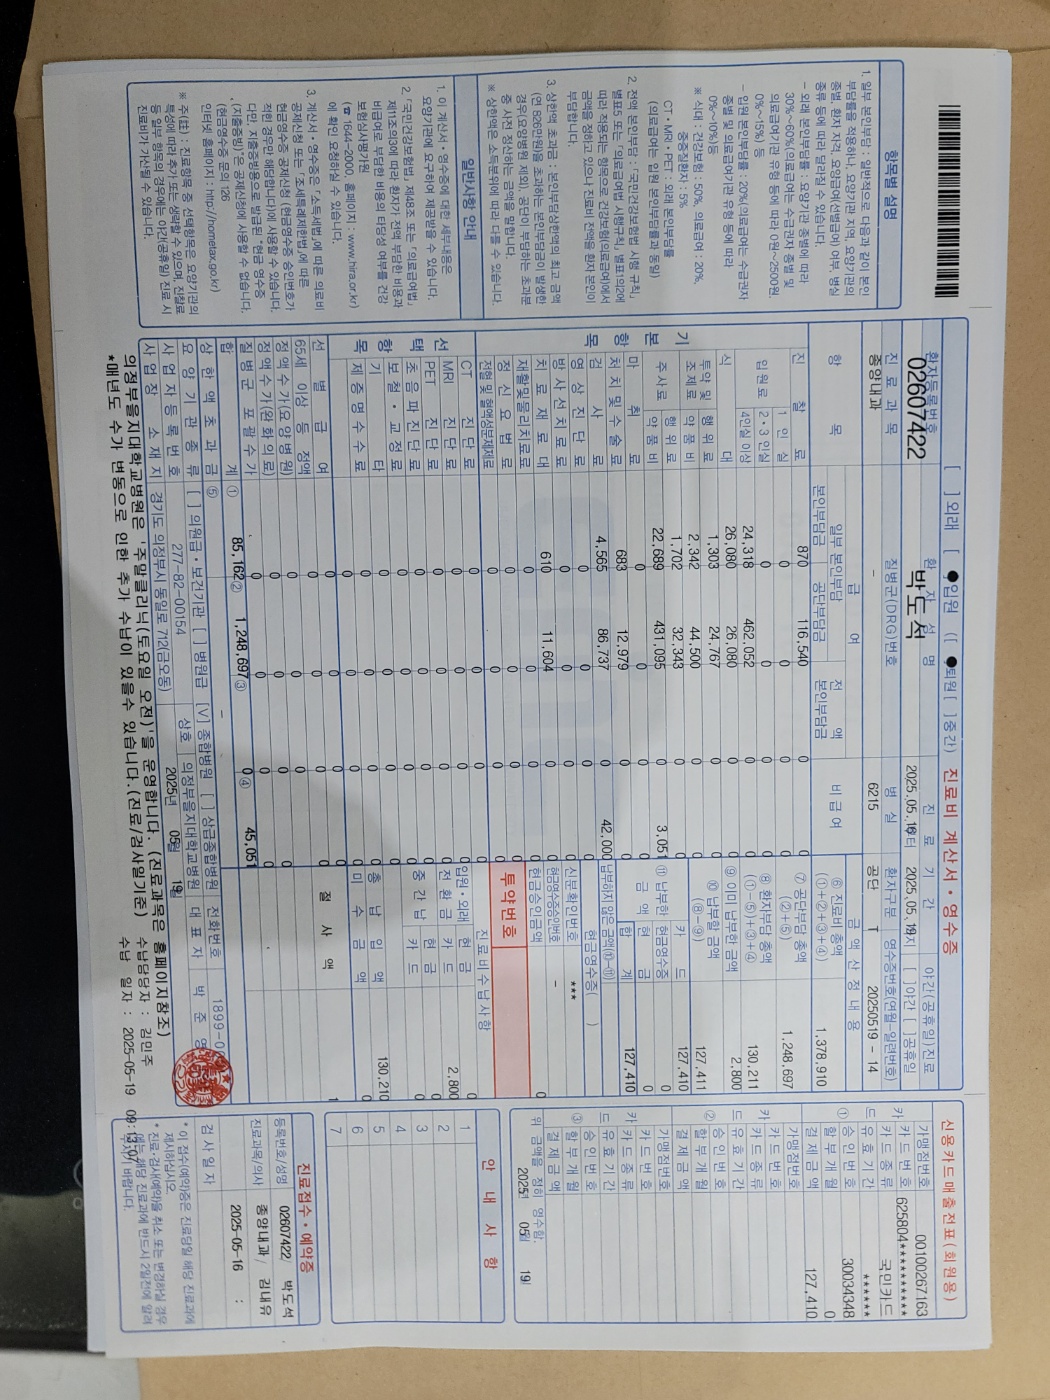 [ ]외래 [ ●]입원 ([ ●]퇴원 [ ]중간) 진료비 계산서·영수증
환자등록번호 환자성명 진료기간 야간(공휴일)진료
02607422 박도석 2025.05.16부터 2025.05.19까지 [ ]야간 [ ]공휴일
진료과목 질병군(DRG)번호 병실 환자구분 영수증번호(연월-일련번호)
종양내과 - 6215 공단 T 20250519 - 14
항목 급여 비급여 금액산정내용
일부 본인부담 전액 본인부담금
본인부담금 공단부담금
기본항목
진찰료 870 116,540 0 0
입원료 1인실 0 0 0 0
2·3인실 0 0 0 0
4인실 이상 24,318 462,052 0 0
식대 26,080 26,080 0 0
투약 및 조제료 행위료 1,303 24,767 0 0
약품비 2,342 44,500 0 0
주사료 행위료 1,702 32,343 0 0
약품비 22,689 431,095 0 3,051
마취료 0 0 0 0
처치 및 수술료 683 12,979 0 0
검사료 4,565 86,737 0 42,000
영상진단료 0 0 0 0
방사선치료료 0 0 0 0
치료재료대 610 11,604 0 0
재활및물리치료료 0 0 0 0
정신요법료 0 0 0 0
전혈 및 혈액성분제제료 0 0 0 0
선택항목
CT 진단료 0 0 0 0
MRI 진단료 0 0 0 0
PET 진단료 0 0 0 0
초음파진단료 0 0 0 0
보철·교정료 0 0 0 0
기타 0 0 0 0
제증명수수료 0 0 0 0
선별급여 0 0 0
65세 이상 등 정액 0 0
정액수가(요양병원) 0 0 0
정액수가(완화의료) 0 0 0
질병군 포괄수가 0 0 0
합계 ① 85,162 ② 1,248,697 ③ 0 ④ 45,051
상한액 초과금 ⑤ -
⑥ 진료비 총액 (①+②+③+④) 1,378,910
⑦ 공단부담 총액 (②+⑤) 1,248,697
⑧ 환자부담 총액 (①-⑤)+③+④ 130,211
⑨ 이미 납부한 금액 2,800
⑩ 납부할 금액 (⑧-⑨) 127,411
⑪ 납부한 금액 카드 127,410
현금영수증 0
현금 0
합계 127,410
납부하지 않은 금액(⑩-⑪)
현금영수증( )
신분확인번호 ***
현금영수증승인번호 -
현금승인금액 0
투약번호
진료비수납사항
입원·외래 현금
전환금 카드 2,800
중간납 현금
카드
총납입액 130,210
미수금액
절사액 1
요양기관종류 [ ]의원급·보건기관 [ ]병원급 [V]종합병원 [ ]상급종합병원 전화번호 1899-0
사업자등록번호 277-82-00154 상호 의정부을지대학교병원 대표자 박준영
사업장 소재지 경기도 의정부시 동일로 712(금오동) 2025년 05월 19일
의정부을지대학교병원은 '주말클리닉(토요일 오전)'을 운영합니다. (진료과목은 홈페이지참조) 수납담당자 : 김민주
*매년도 수가 변동으로 인한 추가 수납이 있을수 있습니다.(진료/검사일기준) 수납 일자 : 2025-05-19 09:13:07
항목별 설명
1. 일부 본인부담 : 일반적으로 다음과 같이 본인
부담률을 적용하나, 요양기관 지역, 요양기관의
종별, 환자 자격, 요양급여(선별급여) 여부, 병실
종류 등에 따라 달라질 수 있습니다.
- 외래 본인부담률 : 요양기관 종별에 따라
30%~60%(의료급여는 수급권자 종별 및
의료급여기관 유형 등에 따라 0원~2500원,
0%~15%) 등
- 입원 본인부담률 : 20%(의료급여는 수급권자
종별 및 의료급여기관 유형 등에 따라
0%~10%)등
※ 식대 : 건강보험 : 50%, 의료급여 : 20%,
중증질환자 : 5%
CT·MRI·PET : 외래 본인부담률
(의료급여는 입원 본인부담률과 동일)
2. 전액 본인부담 : 「국민건강보험법 시행 규칙」
별표5 또는 「의료급여법 시행규칙」 별표1의2에
따라 적용되는 항목으로 건강보험(의료급여)에서
금액을 정하고 있으나 진료비 전액을 환자 본인이
부담합니다.
3. 상한액 초과금 : 본인부담상한액의 최고 금액
(연 826만원)을 초과하는 본인부담금이 발생한
경우(요양병원 제외), 공단이 부담하는 초과분
중 사전 정산하는 금액을 말합니다.
※ 상한액은 소득분위에 따라 다를 수 있습니다.
일반사항 안내
1. 이 계산서·영수증에 대한 세부내용은
요양기관에 요구하여 제공받을 수 있습니다.
2. 「국민건강보험법」 제48조 또는 「의료급여법」
제11조의3에 따라 환자가 전액 부담한 비용과
비급여로 부담한 비용의 타당성 여부를 건강
보험심사평가원
(☎ 1644-2000, 홈페이지 : www.hira.or.kr)
에 확인 요청하실 수 있습니다.
3. 계산서·영수증은 「소득세법」에 따른 의료비
공제신청 또는 「조세특례제한법」에 따른
현금영수증 공제신청 (현금영수증 승인번호가
적힌 경우만 해당합니다)에 사용할 수 있습니다.
다만, 지출증빙용으로 발급된 "현금 영수증
(지출증빙)"은 공제신청에 사용할 수 없습니다.
(현금영수증 문의 126
인터넷 홈페이지 : http://hometax.go.kr)
* 주(註) : 진료항목 중 선택항목은 요양기관의
특성에 따라 추가 또는 생략할 수 있으며, 진찰료
등 일부 항목의 경우에는 야간(공휴일) 진료 시
진료비가 가산될 수 있습니다.
신용카드매출전표(회원용)
가맹점번호 00100267163
카드번호 625804**********
카드종류 국민카드
유효기간 ******
① 승인번호 30034348
할부개월 0
결제금액 127,410
가맹점번호
카드번호
카드종류
유효기간
② 승인번호
할부개월
결제금액
가맹점번호
카드번호
카드종류
유효기간
승인번호
③ 할부개월
결제금액
위 금액을 정히 영수함.
2025년 05월 19일
안내사항
1
2
3
4
5
6
7
진료접수·예약증
등록번호/성명 02607422/ 박도석
진료과목/의사 종양내과 / 김내유
검사일자 2025-05-16 :
* 이 접수(예약)증은 진료당일 해당 진료과에
제시하십시오.
* 진료·검사예약을 취소 또는 변경하실 경우
에는 해당 진료과에 반드시 2일전에 알려
주시기 바랍니다.